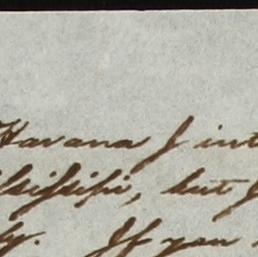 Havana I int
sissippi, but I
y. If you